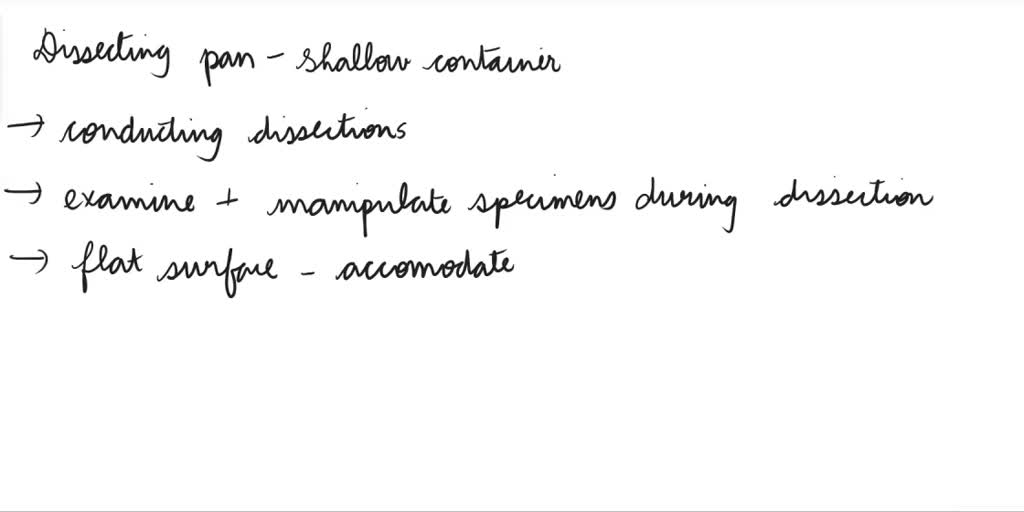 Dissecting pan - shallow container
→ conducting dissections
→ examine + manipulate specimens during dissection
→ flat surface - accomodate